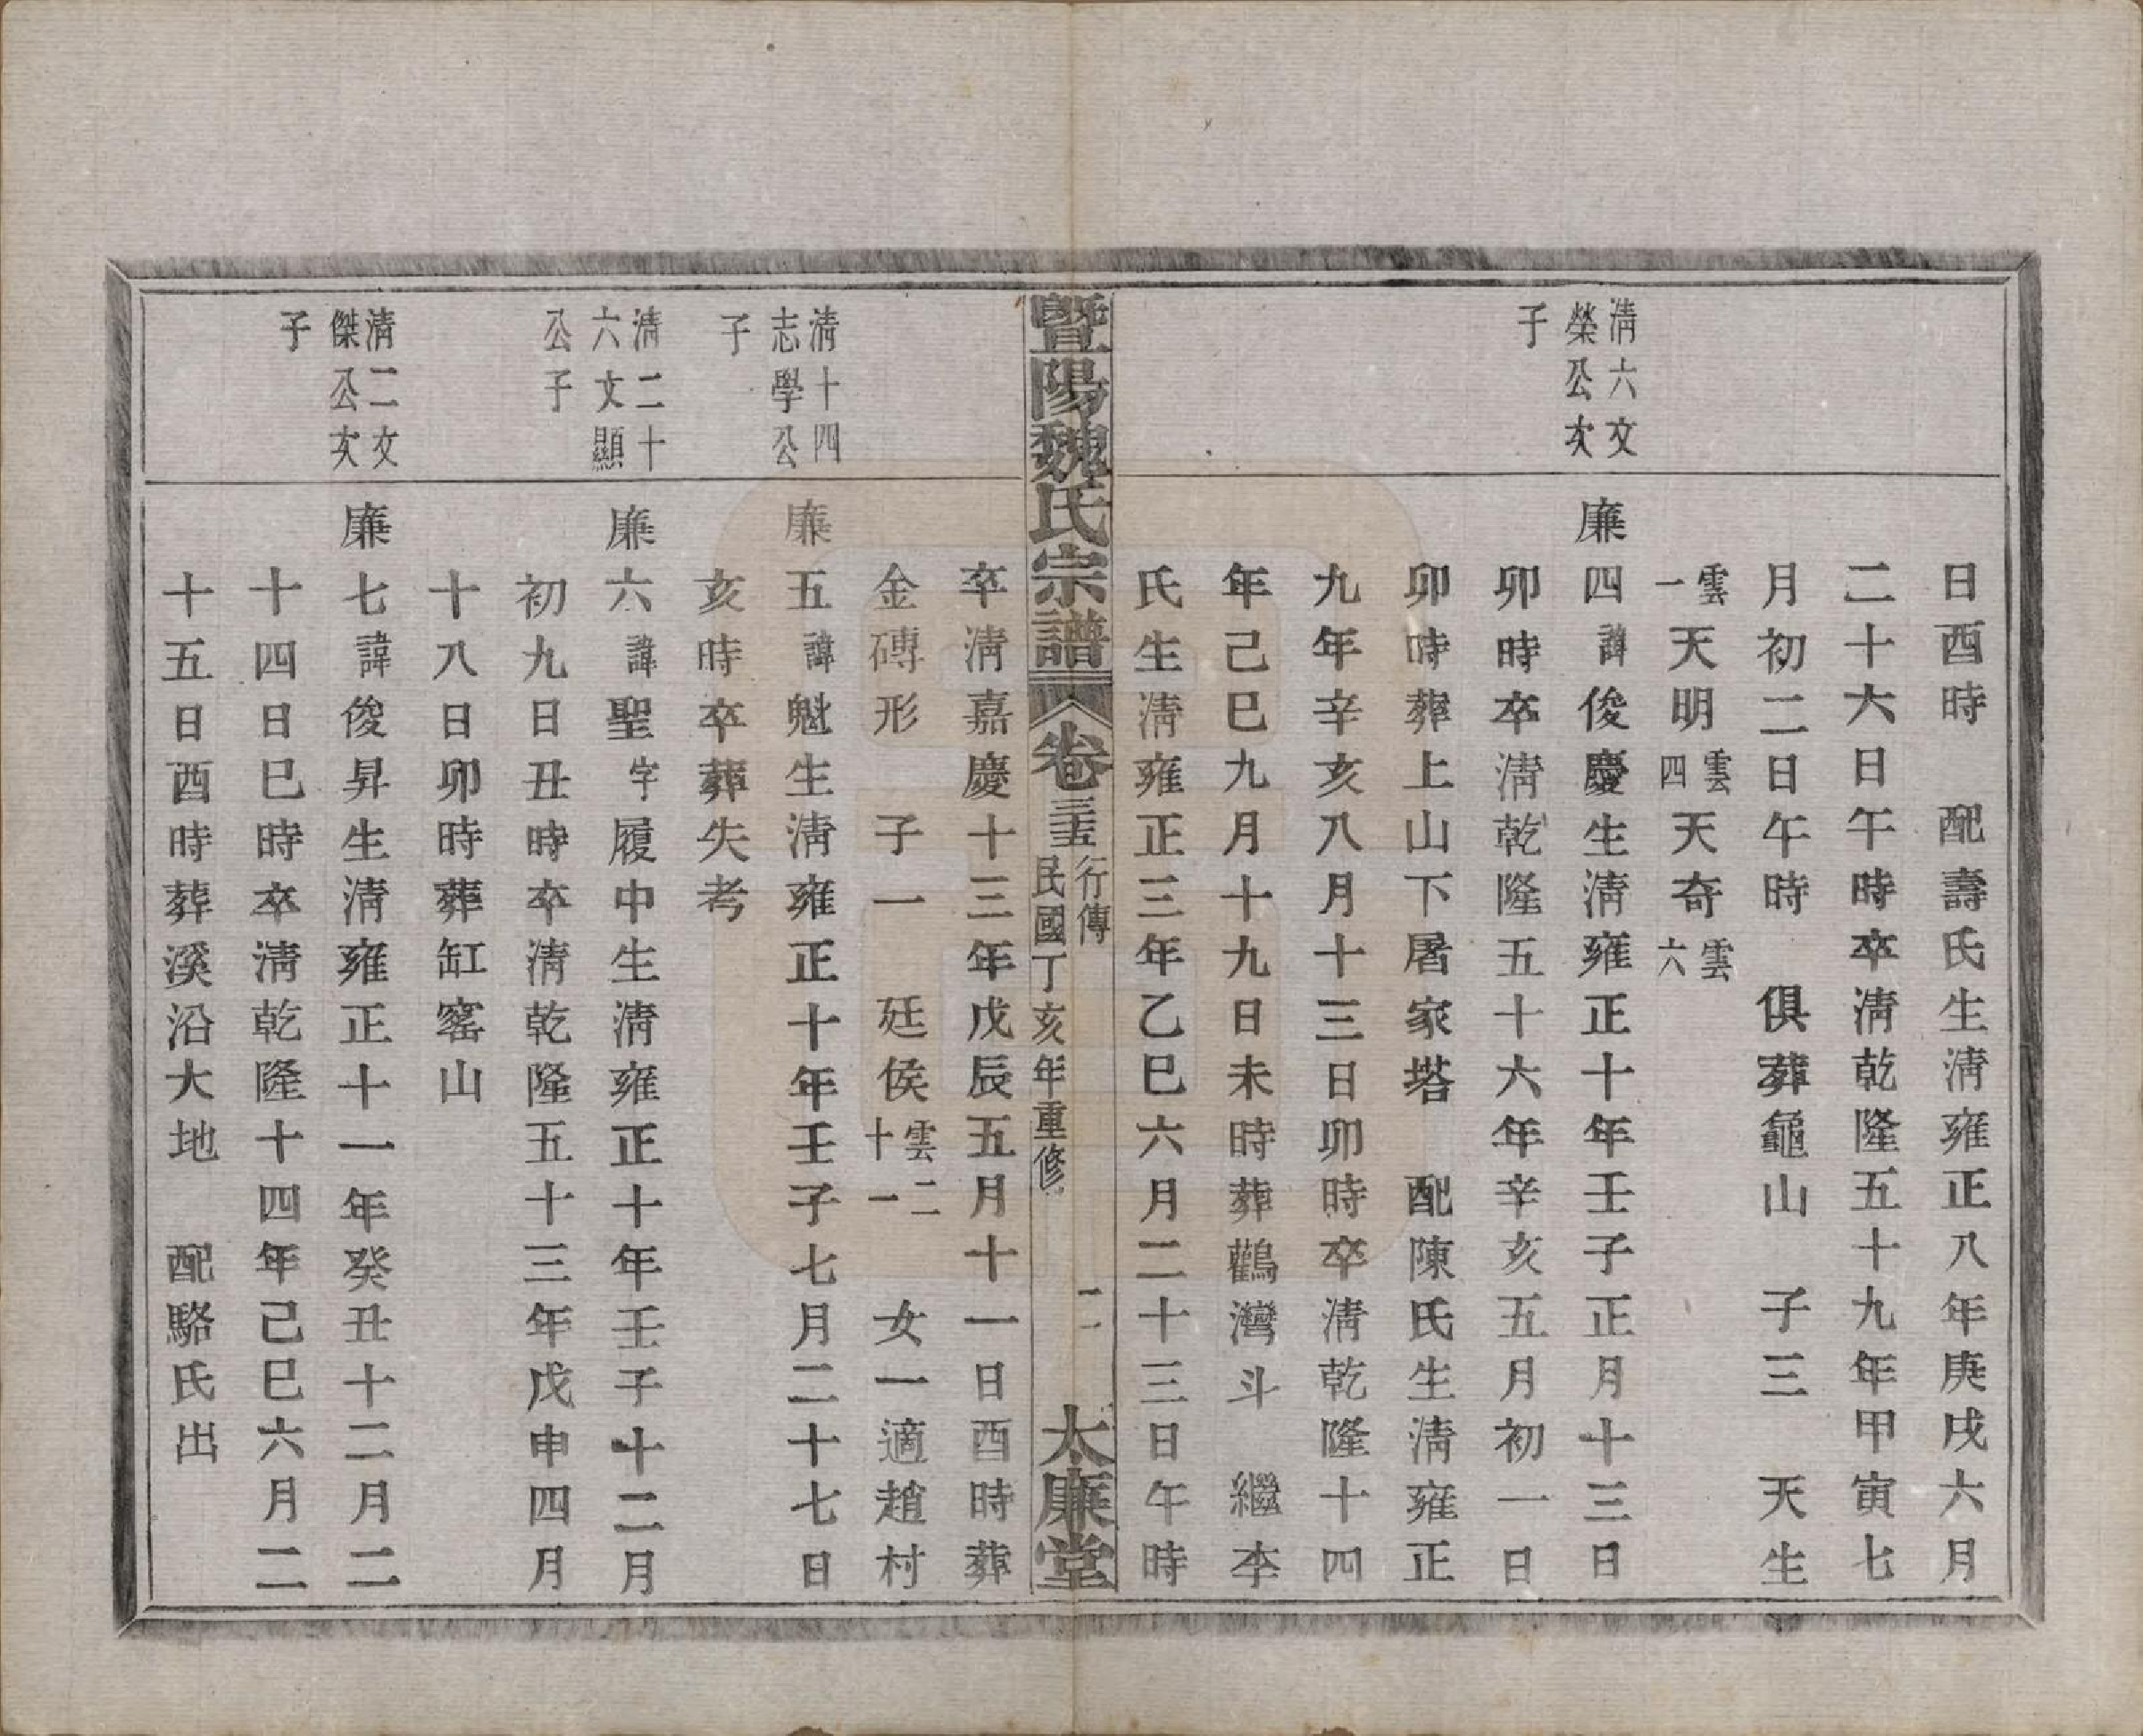 日酉時　配壽氏生淸雍正八年庚戌六月
二十六日午時卒淸乾隆五十九年甲寅七
月初二日午時　俱葬龜山　子三　天生
雲一天明雲四天奇雲六
淸六文榮公次子
廉四諱俊慶生淸雍正十年壬子正月十三日
卯時卒淸乾隆五十六年辛亥五月初一日
卯時葬上山下屠家塔　配陳氏生淸雍正
九年辛亥八月十三日卯時卒淸乾隆十四
年己巳九月十九日未時葬鸛灣斗　繼李
氏生淸雍正三年乙巳六月二十三日午時
暨陽魏氏宗譜　卷三十五　行傳　民國丁亥年重修　二　太廉堂
卒淸嘉慶十三年戊辰五月十一日酉時葬
金磚形　子一　廷侯雲二十一　女一適趙村
淸十四志學公子
廉五諱魁生淸雍正十年壬子七月二十七日
亥時卒葬失考
淸二十六文顯公子
廉六諱聖字履中生淸雍正十年壬子十二月
初九日丑時卒淸乾隆五十三年戊申四月
十八日卯時葬缸窰山
淸二文傑公次子
廉七諱俊昇生淸雍正十一年癸丑十二月二
十四日巳時卒淸乾隆十四年己巳六月二
十五日酉時葬溪沿大地　配駱氏出